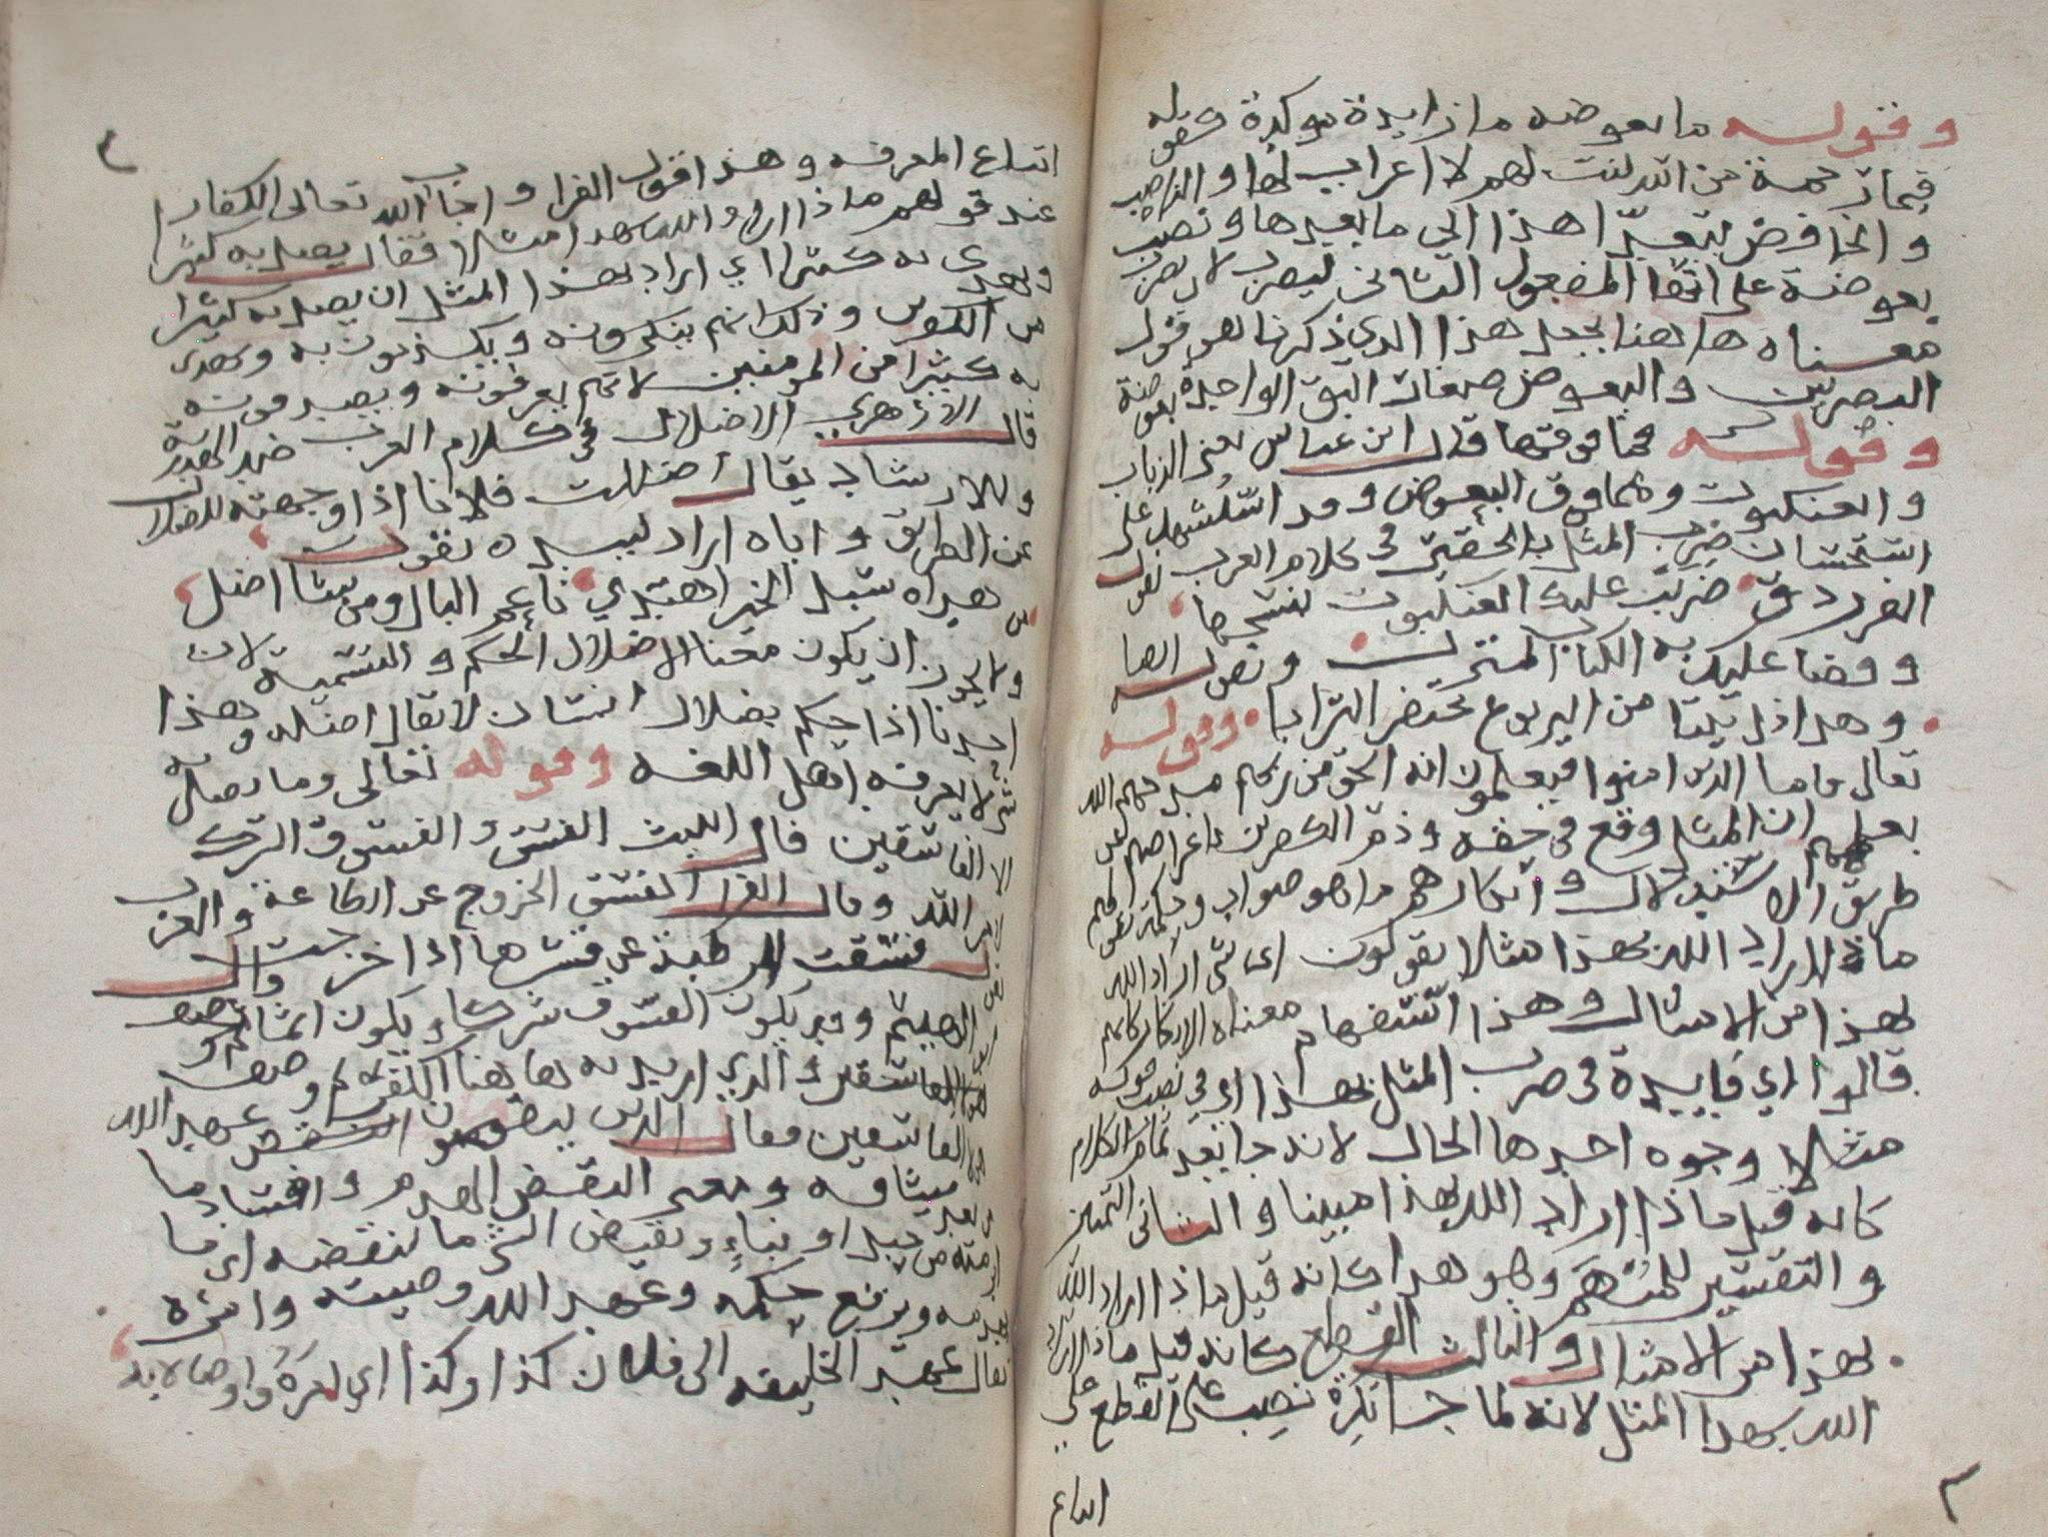 وقوله ما بعوضه ما زايدة موكدة كقوله
فبما رحمة من الله لنت لهم لا اعراب لها والناصب
والخافض يتعدا هذا الى ما بعدها ونصب
بعوضة على انها المفعول الثاني ليضرب لان يضرب
معناه هاهنا يجعل هذا الذي ذكرناه هو قول
البصريين والبعوض صغار البق الواحدة بعوضة
وقوله فما فوقها قال ابن عباس يعني الذباب
والعنكبوت وما فوق البعوض وقد استشهد على
استحسان ضرب المثل بالحقير في كلام العرب بقول
الفرزدق ضربت عليك العنكبوت بنسجها
وقضا عليك به الكتاب المنزل وبقوله ايضا
وهذا اذ بيتا من اليربوع تحتفر الترابا وقوله
تعالى فاما الذين امنوا فيعلمون انه الحق من ربهم مدحهم الله
بعلمهم ان المثل وقع في حقه وذم الكفرين باعراضهم عن
طريق الاستدلال وانكارهم ما هو صواب وحكمة بقولهم
ماذا اراد الله بهذا مثلا يقولون اي شي اراد الله
بهذا من الامثال وهذا استفهام معناه الانكار كانهم
قالوا اي فايدة في ضرب المثل بهذا اي وفي نصب قوله
مثلا وجوه احدها الحال لانه جا بعد تمام الكلام
كانه قيل ماذا اراد الله بهذا مبينا والثاني التميز
والتفسير للمبهم وهو هذا كانه قيل ماذا اراد الله
بهذا من الامثال والثالث القطع كانه قيل ماذا اراد
الله بهذا المثل لانه لما جا نكرة نصب على القطع على
اتباع
اتباع المعرفه وهذا قول الفرا واجاب الله تعالى الكفار
عند قولهم ماذا اراد الله بهذا مثلا فقال يضل به كثيرا
ويهدي به كثيرا اي اراد بهذا المثل ان يضل به كثيرا
من الكفرين وذلك انهم ينكرونه ويكذبون به ويهدى
به كثيرا من المومنين لانهم يعرفونه ويصدقونه
قال الازهري الاضلال في كلام العرب ضد الهداية
والارشاد يقال اضللت فلانا اذا وجهته للضلال
عن الطريق واياه اراد لبيد ه بقوله
من هداه سبل الخير اهتدي ناعم البال ومن شا اضل
ولا يجوز ان يكون معنا الاضلال الحكم والتسمية لان
احدنا اذا حكم بضلال انسان لا يقال اضله وهذا
شي لا يعرفه اهل اللغه وقوله تعالى وما يضل به
الا الفاسقين قال الليث الفسق والفسوق الترك
لامر الله وقال الفرا الفسق الخروج عن الطاعة والعرب
فسقت الرطبة عن قشرها اذا خرجت وقال
ابو الهيثم وقد يكون الفسوق شركا ويكون اثما
والذي اريد به هاهنا الكفر ثم وصف
الفاسقين فقال الذين ينقضون عهد الله
من بعد ميثاقه ومعنى النقض الهدم وافساد ما
ابرمته من حبل او بناء ونقيض الشي ما ينقضه اي ما
يهدمه ويرفع حكمه وعهد الله وصيته وامره
يقال عهد الخليفه الى فلان كذا وكذا اي امره واوصا لابه